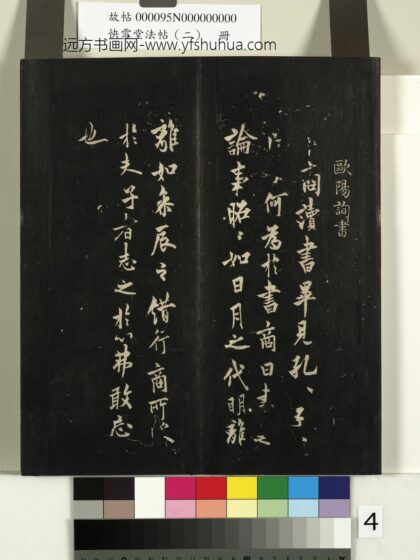 故帖 000095N000000000
快雪堂法帖(二) 冊
远方书画网-www.yfshuhua.com
歐陽詢書
商讀書畢見孔、子、
何為於書商曰書之
論事昭、如日月之代明離
離如參辰之錯行商所
於夫子者志之於心弗敢忘
也
4